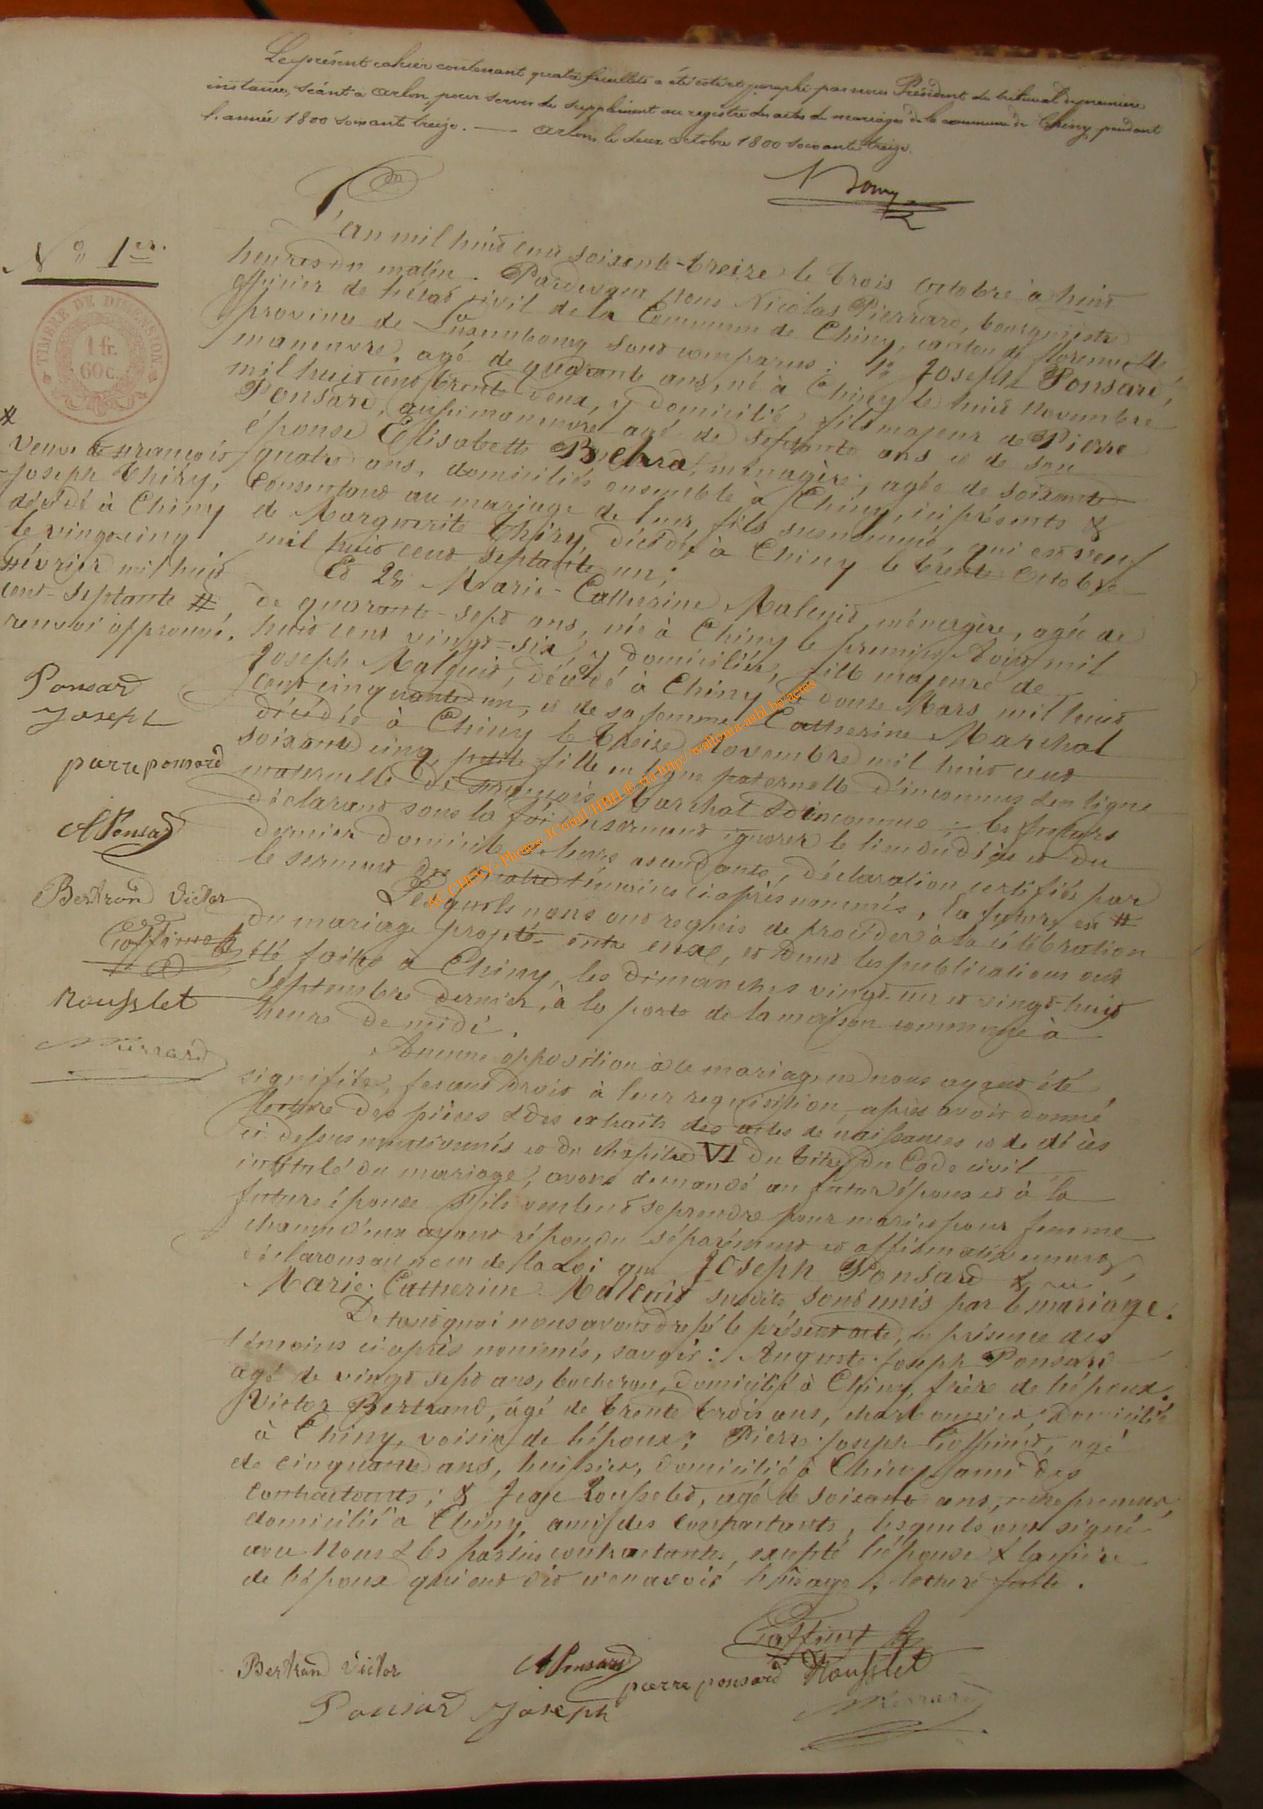 Le présent cahier contenant quatre feuillets a été coté et paraphé par nous Président du tribunal de première
instance, séant à Arlon, pour servir de supplément au registre des actes de mariages de la commune de Chiny, pendant
l'année 1800 soixante treize. — Arlon, le deux octobre 1800 soixante treize.
N° 1er.
TIMBRE DE DIMENSION
1 fr.
60 c.
L'an mil huit cent soixante-treize le trois octobre à huit
heures du matin. Pardevant Nous Nicolas Pierrard, bourgmestre
officier de l'état civil de la Commune de Chiny, canton de Florenville,
province de Luxembourg sont comparus: 1° Joseph Ponsard,
manœuvre, agé de quarante ans, né à Chiny le huit Novembre
mil huit cent trente deux, y domicilié, fils majeur de Pierre
Ponsard, aussi manœuvre agé de septante ans et de son
épouse Elisabeth ménagère, agée de soixante
quatre ans, domiciliés ensemble à Chiny, ici présents &
consentant au mariage de leur fils susnommé, qui est veuf
de Marguerite Thiry, décédée à Chiny le trente Octobre
mil huit cent septante un;
Et 2° Marie-Catherine Malcuit, ménagère, agée de
de quarante-sept ans, née à Chiny le premier Août mil
huit cent vingt-six, y domiciliée, fille majeure de
Joseph Malcuit, décédé à Chiny le douze Mars mil huit
cent cinquante un, et de sa femme Catherine Marchal
décédée à Chiny le treize Novembre mil huit cent
soixante cinq, petite fille en ligne paternelle d'inconnus & en ligne
maternelle de François Marchal & d'inconnue; les futurs
déclarant sous la foi du serment ignorer le lieu du décès et du
dernier domicile de leurs ascendants, déclaration certifiée par
le serment des quatre témoins ci après nommés, la future est #
Lesquels nous ont requis de procéder à la célébration
du mariage projeté entre eux, et dont les publications ont
été faites à Chiny, les dimanches vingt-un et vingt-huit
Septembre dernier, à la porte de la maison commune à
heure de midi.
Aucune opposition à ce mariage ne nous ayant été
signifiée, fesant droit à leur requisition, après avoir donné
lecture des pièces & des extraits des actes de naissances et de décès
ci dessus mentionnés et du chapitre VI du titre du Code civil
intitulé du mariage, avons demandé au futur époux et à la
future épouse s'ils veulent se prendre pour mari et pour femme
chacun d'eux ayant répondu séparément et affirmativement,
déclarons au nom de la Loi que Joseph Ponsard &
Marie-Catherine Malcuit susdits, sont unis par le mariage.
De tout quoi nous avons dressé le présent acte, en présence des
témoins ci après nommés, savoir: Auguste Joseph Ponsard
agé de vingt sept ans, bucheron, domicilié à Chiny, frère de l'époux.
Victor Bertrand, âgé de trente trois ans, charbonnier, domicilié
à Chiny, voisin de l'époux; Pierre-Joseph Goffinet, agé
de cinquante ans, huissier, domicilié à Chiny, ami des
contractants; & Rousselet, agé de soixante ans, entrepreneur,
domicilié à Chiny, ami des contractants, lesquels ont signé
avec Nous & les parties contractantes, excepté l'épouse & la mère
de l'époux qui ont dit n'en avoir l'usage, lecture faite.
#
veuve de François
Joseph Thiry,
décédé à Chiny
le vingt-cinq
février mil huit
cent-septante #
renvoi approuvé.
Ponsard
Joseph
pierre ponsard
A Ponsard
Bertrand Victor
Goffinet
Rousslet
NPierrard
Goffinet
Bertrand Victor
A Ponsard
pierre ponsard
Rousslet
Ponsard Joseph
NPierrard